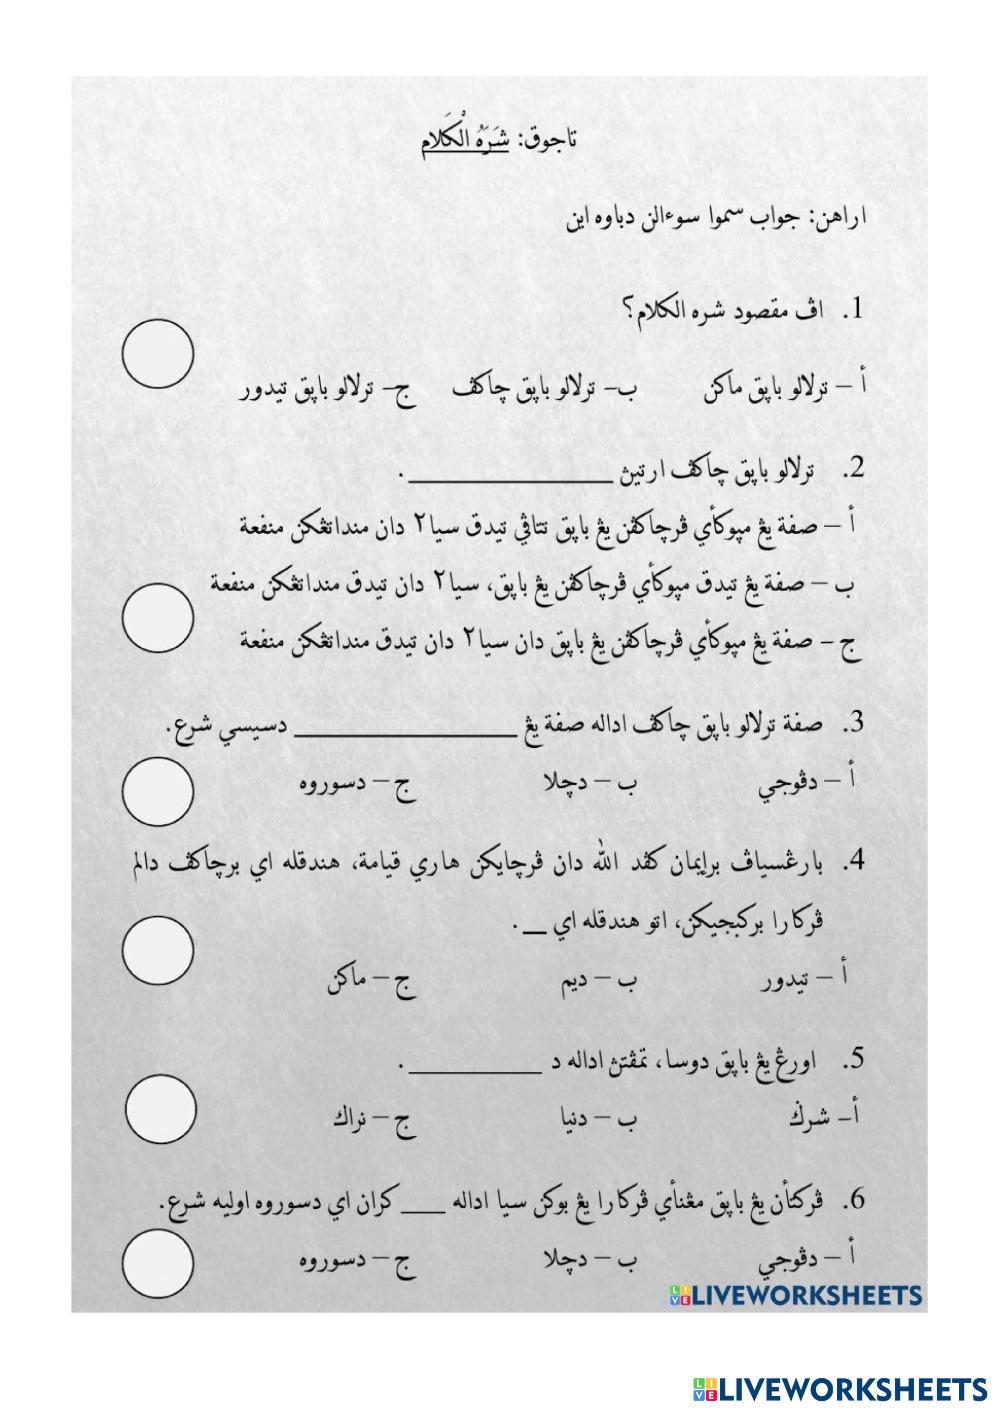 تاجوق: شَرَهُ الْكَلَام
اراهن: جواب سموا سوءالن دباوه اين
1. اڤ مقصود شره الكلام؟
أ – ترلالو باڽق ماكن ب– ترلالو باڽق چاكڤ ج– ترلالو باڽق تيدور
2. ترلالو باڽق چاكڤ ارتيڽ _______________ .
أ – صفة يڠ مڽوكأي ڤرچاكڤن يڠ باڽق تتاڤي تيدق سيا٢ دان منداتڠكن منفعة
ب – صفة يڠ تيدق مڽوكأي ڤرچاكڤن يڠ باڽق، سيا٢ دان تيدق منداتڠكن منفعة
ج – صفة يڠ مڽوكأي ڤرچاكڤن يڠ باڽق دان سيا٢ دان تيدق منداتڠكن منفعة
3. صفة ترلالو باڽق چاكڤ اداله صفة يڠ ________________ دسيسي شرع.
أ – دڤوجي ب – دچلا ج – دسوروه
4. بارڠسياڤ برإيمان كڤد الله دان ڤرچايكن هاري قيامة، هندقله اي برچاكڤ دالم
ڤركارا بركبجيكن، اتو هندقله اي __ .
أ – تيدور ب – ديم ج – ماكن
5. اورڠ يڠ باڽق دوسا، تمڤتڽ اداله د __________ .
أ– شرݢ ب – دنيا ج – نراك
6. ڤركتأن يڠ باڽق مڠنأي ڤركارا يڠ بوكن سيا اداله ____ كران اي دسوروه اوليه شرع.
أ – دڤوجي ب – دچلا ج – دسوروه
LIVEWORKSHEETS
LIVEWORKSHEETS